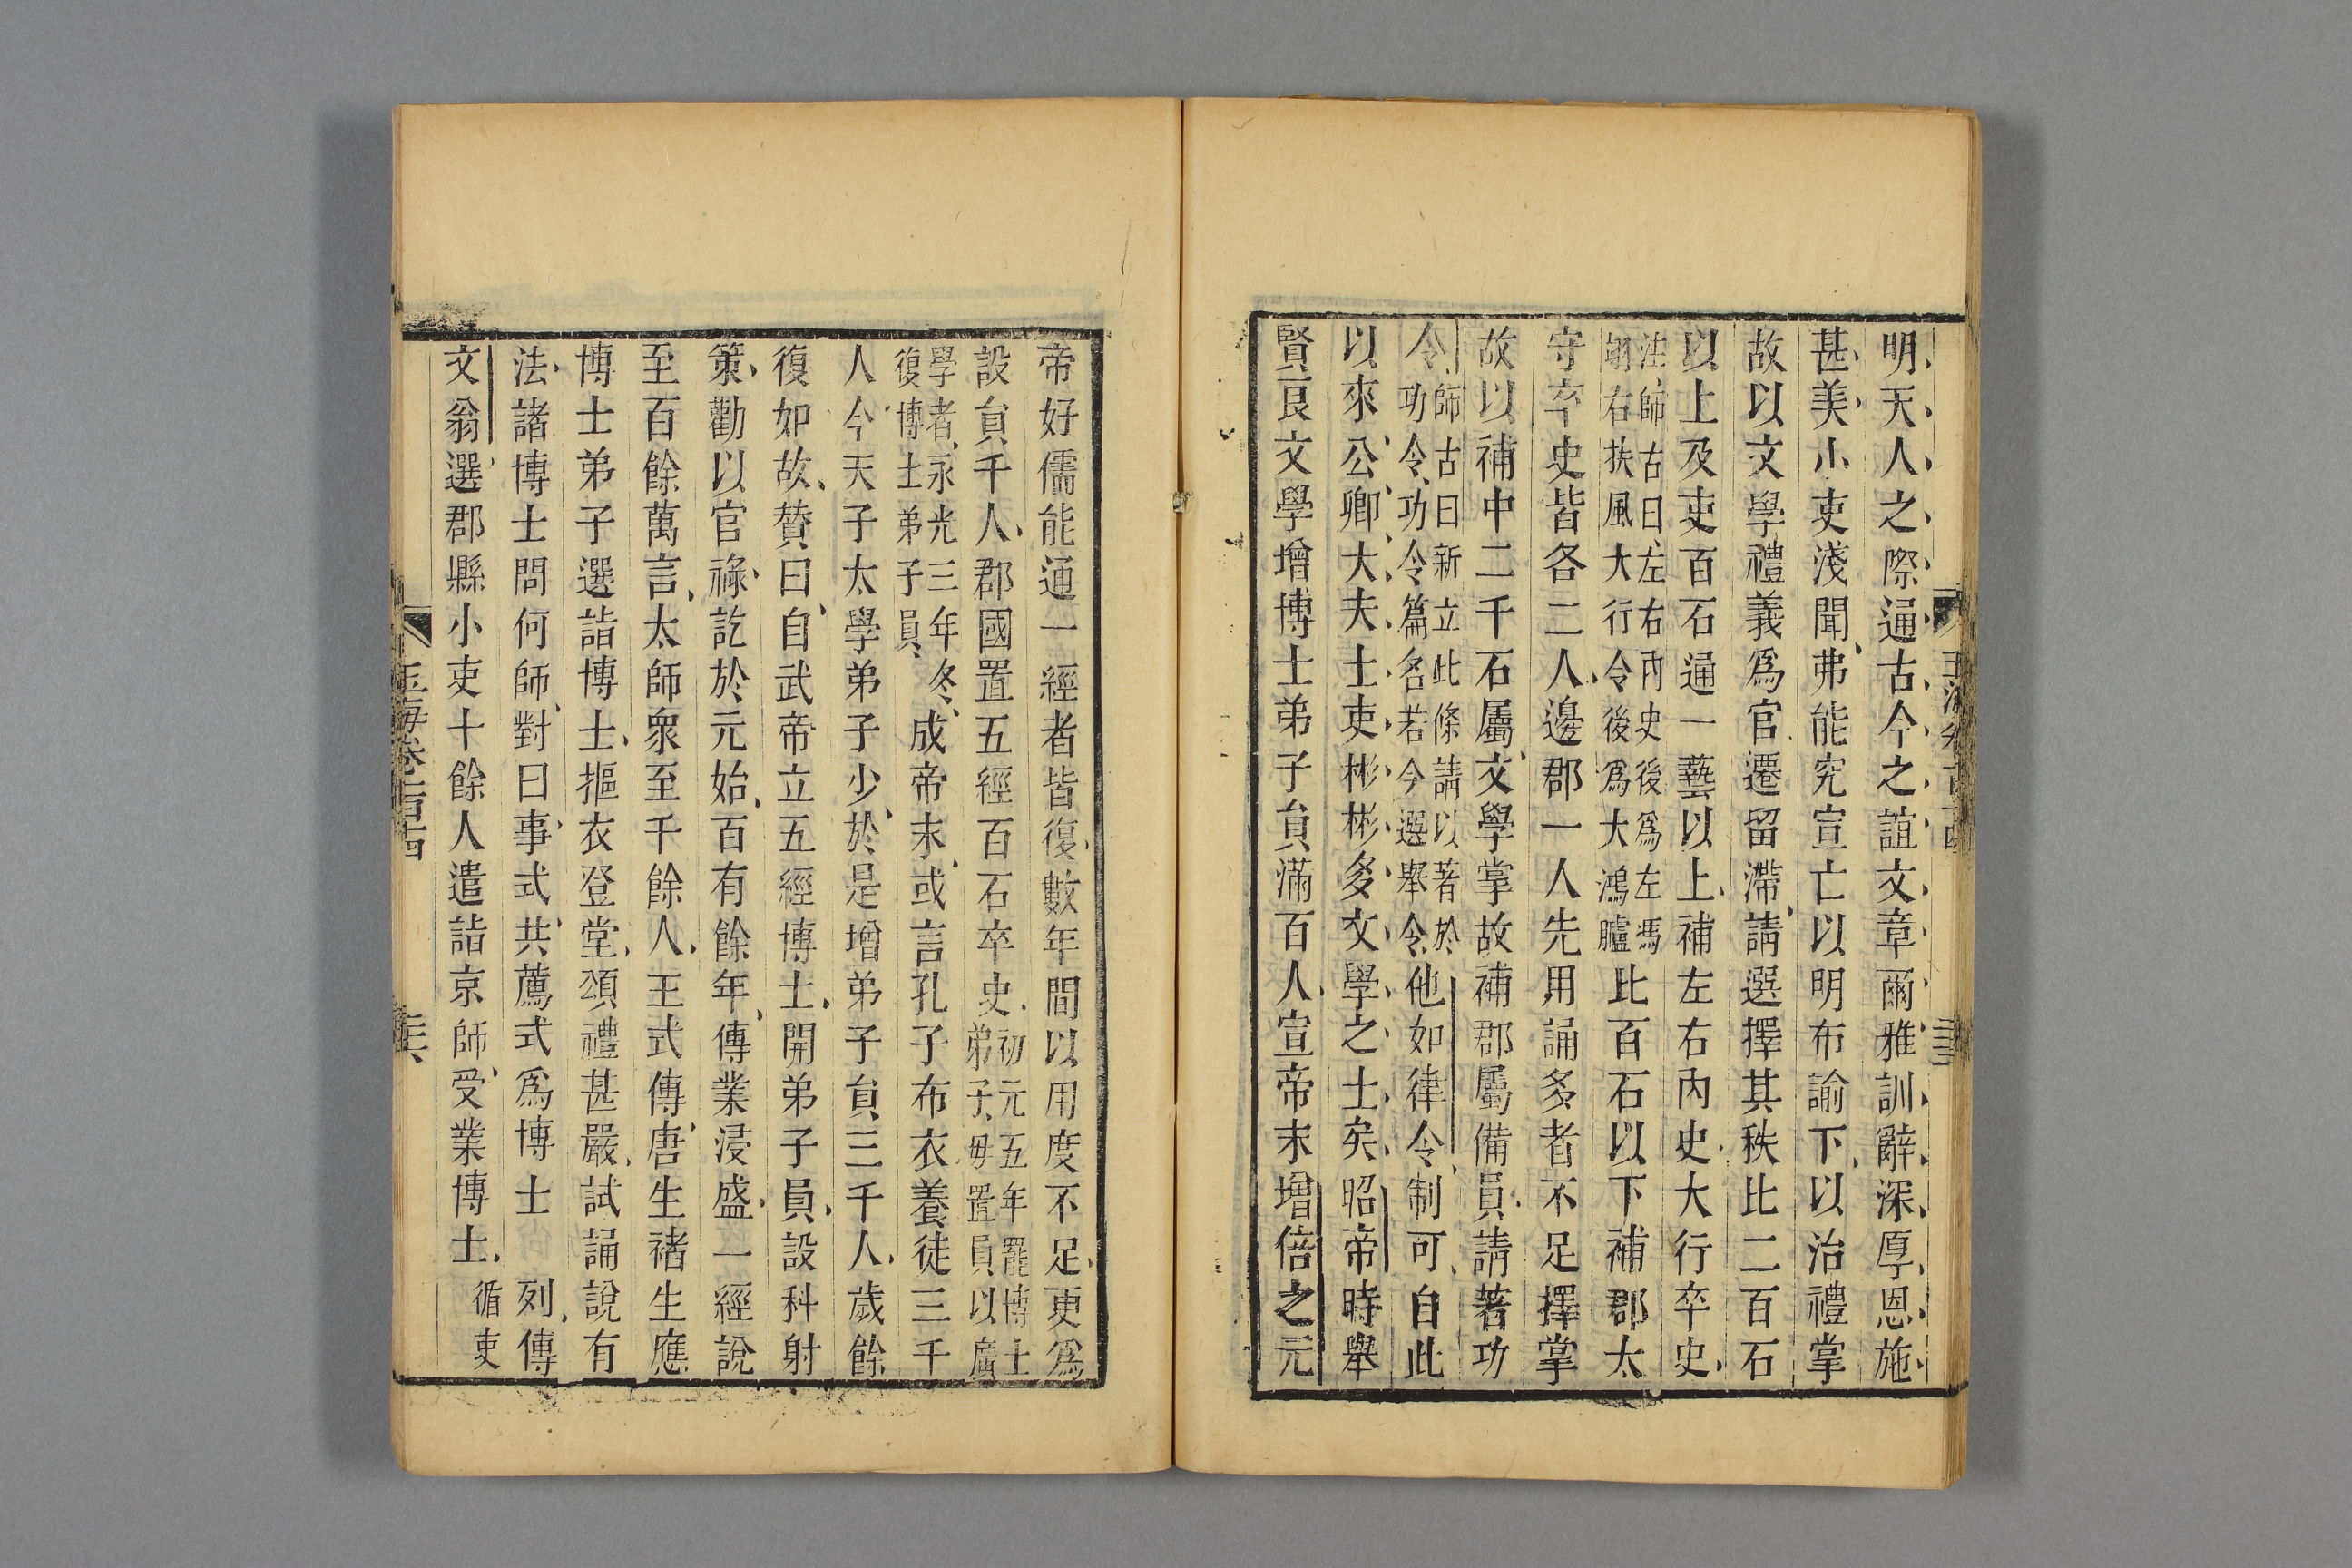 明天人之際通古今之誼文章爾雅訓辭深厚恩施
甚美小吏淺聞弗能究宣亡以明布諭下以治禮掌
故以文學禮義爲官遷留滯請選擇其秩比二百石
以上及吏百石通一藝以上補左右內史大行卒史
注師古曰左右內史後爲左馮
翊右扶風大行令後爲大鴻臚
比百石以下補郡太
守卒史皆各二人邊郡一人先用誦多者不足擇掌
故以補中二千石屬文學掌故補郡屬備員請著功
令
師古曰新立此條請以著於
功令功令篇名若今選舉令
他如律令制可自此
以來公卿大夫士吏彬彬多文學之士矣昭帝時舉
賢良文學增博士弟子員滿百人宣帝末增倍之元
帝好儒能通一經者皆復數年間以用度不足更爲
設員千人郡國置五經百石卒史
初元五年罷博士
弟子毋置員以廣
學者永光三年冬
復博士弟子員
成帝末或言孔子布衣養徒三千
人今天子太學弟子少於是增弟子員三千人歲餘
復如故贊曰自武帝立五經博士開弟子員設科射
策勸以官祿訖於元始百有餘年傳業浸盛一經說
至百餘萬言太師衆至千餘人王式傳唐生褚生應
博士弟子選詣博士摳衣登堂頌禮甚嚴試誦說有
法諸博士問何師對曰事式共薦式爲博士
列傳
文翁選郡縣小吏十餘人遣詣京師受業博士
循吏
玉海卷一百十四